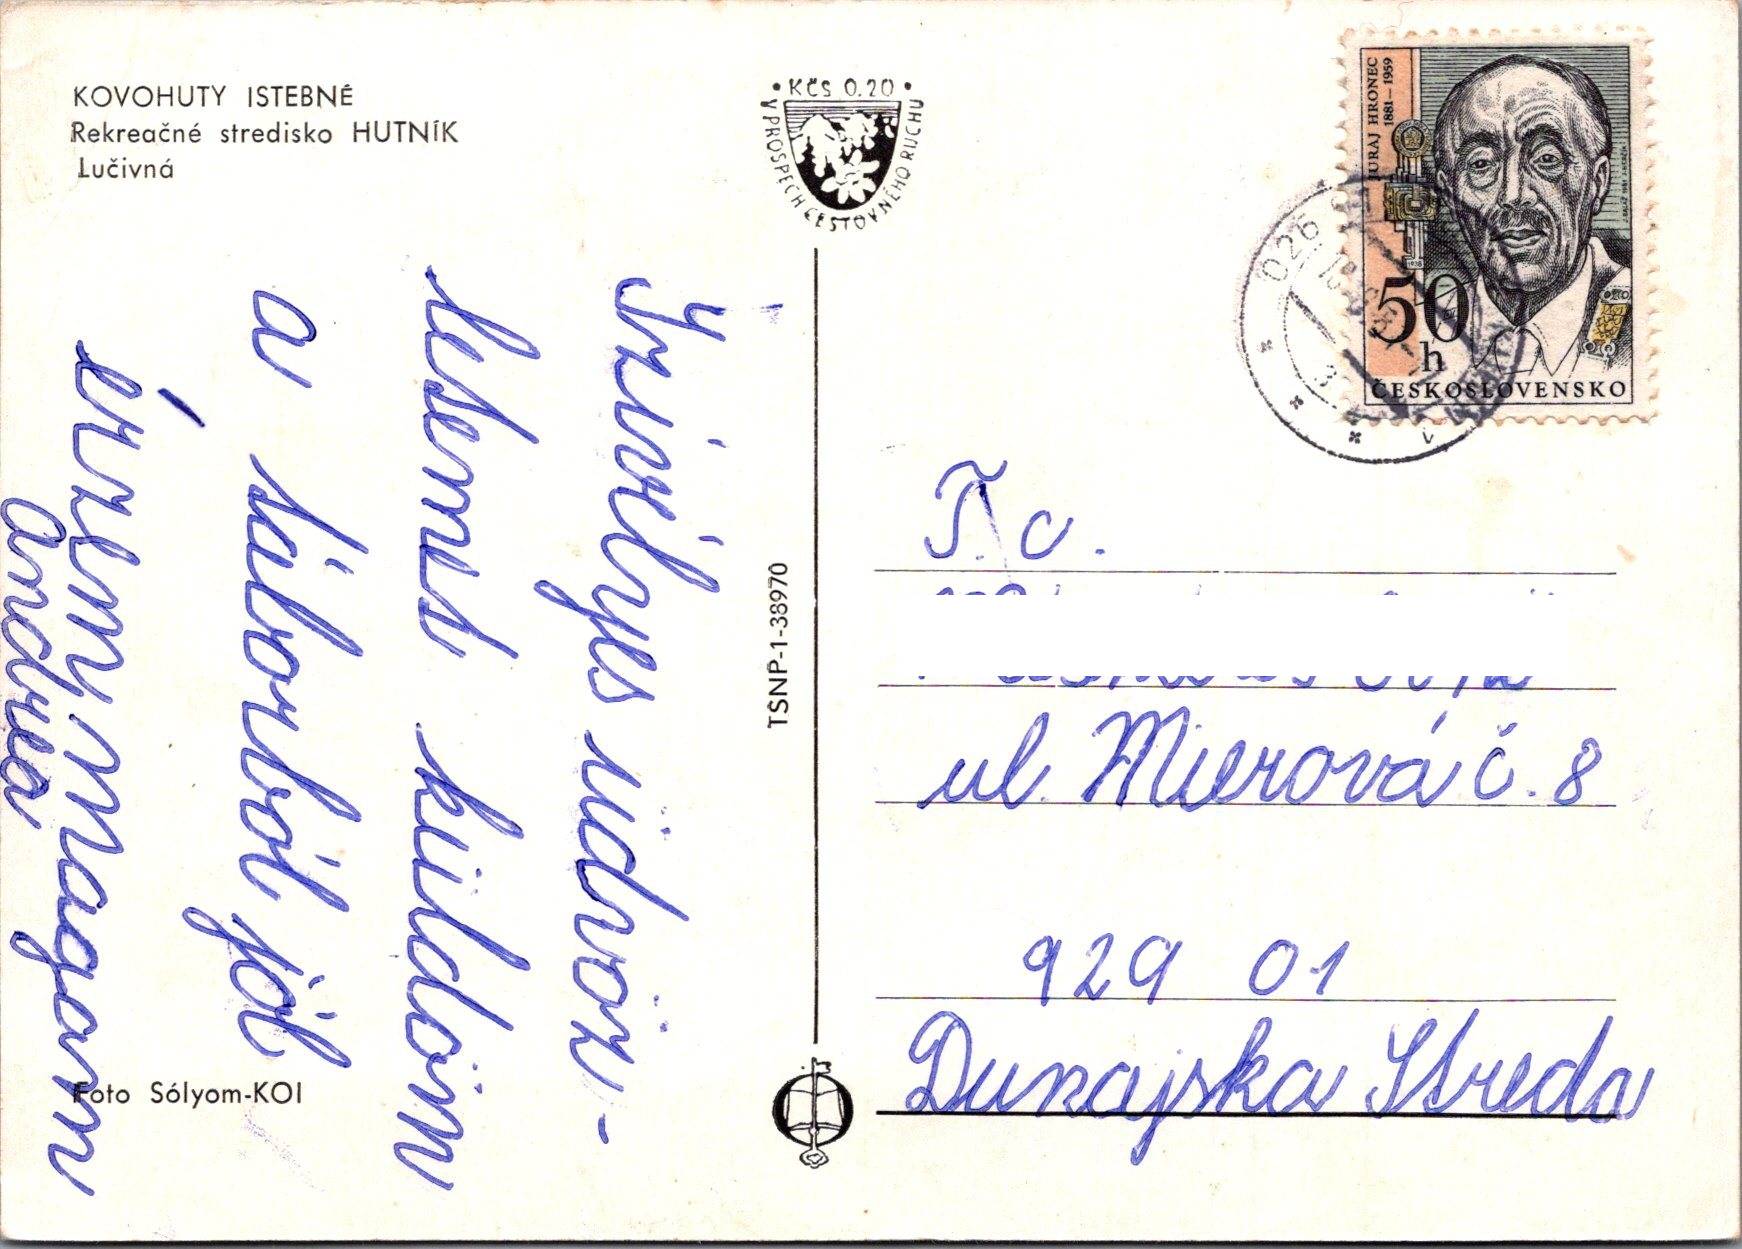 KOVOHUTY ISTEBNÉ
Rekreačné stredisko HUTNÍK
Lučivná
• KČS 0.20 •
V PROSPECH CESTOVNÉHO RUCHU
JURAJ HRONEC
1881–1959
1938
50
h
ČESKOSLOVENSKO
026
Szivélyes üdvöz-
letemet küldöm
a táborból jól
érzem magam
Andrea
TSNP-1-38970
T. c.
ul. Mierová č. 8
929 01
Dunajska Streda
Foto Sólyom-KOI